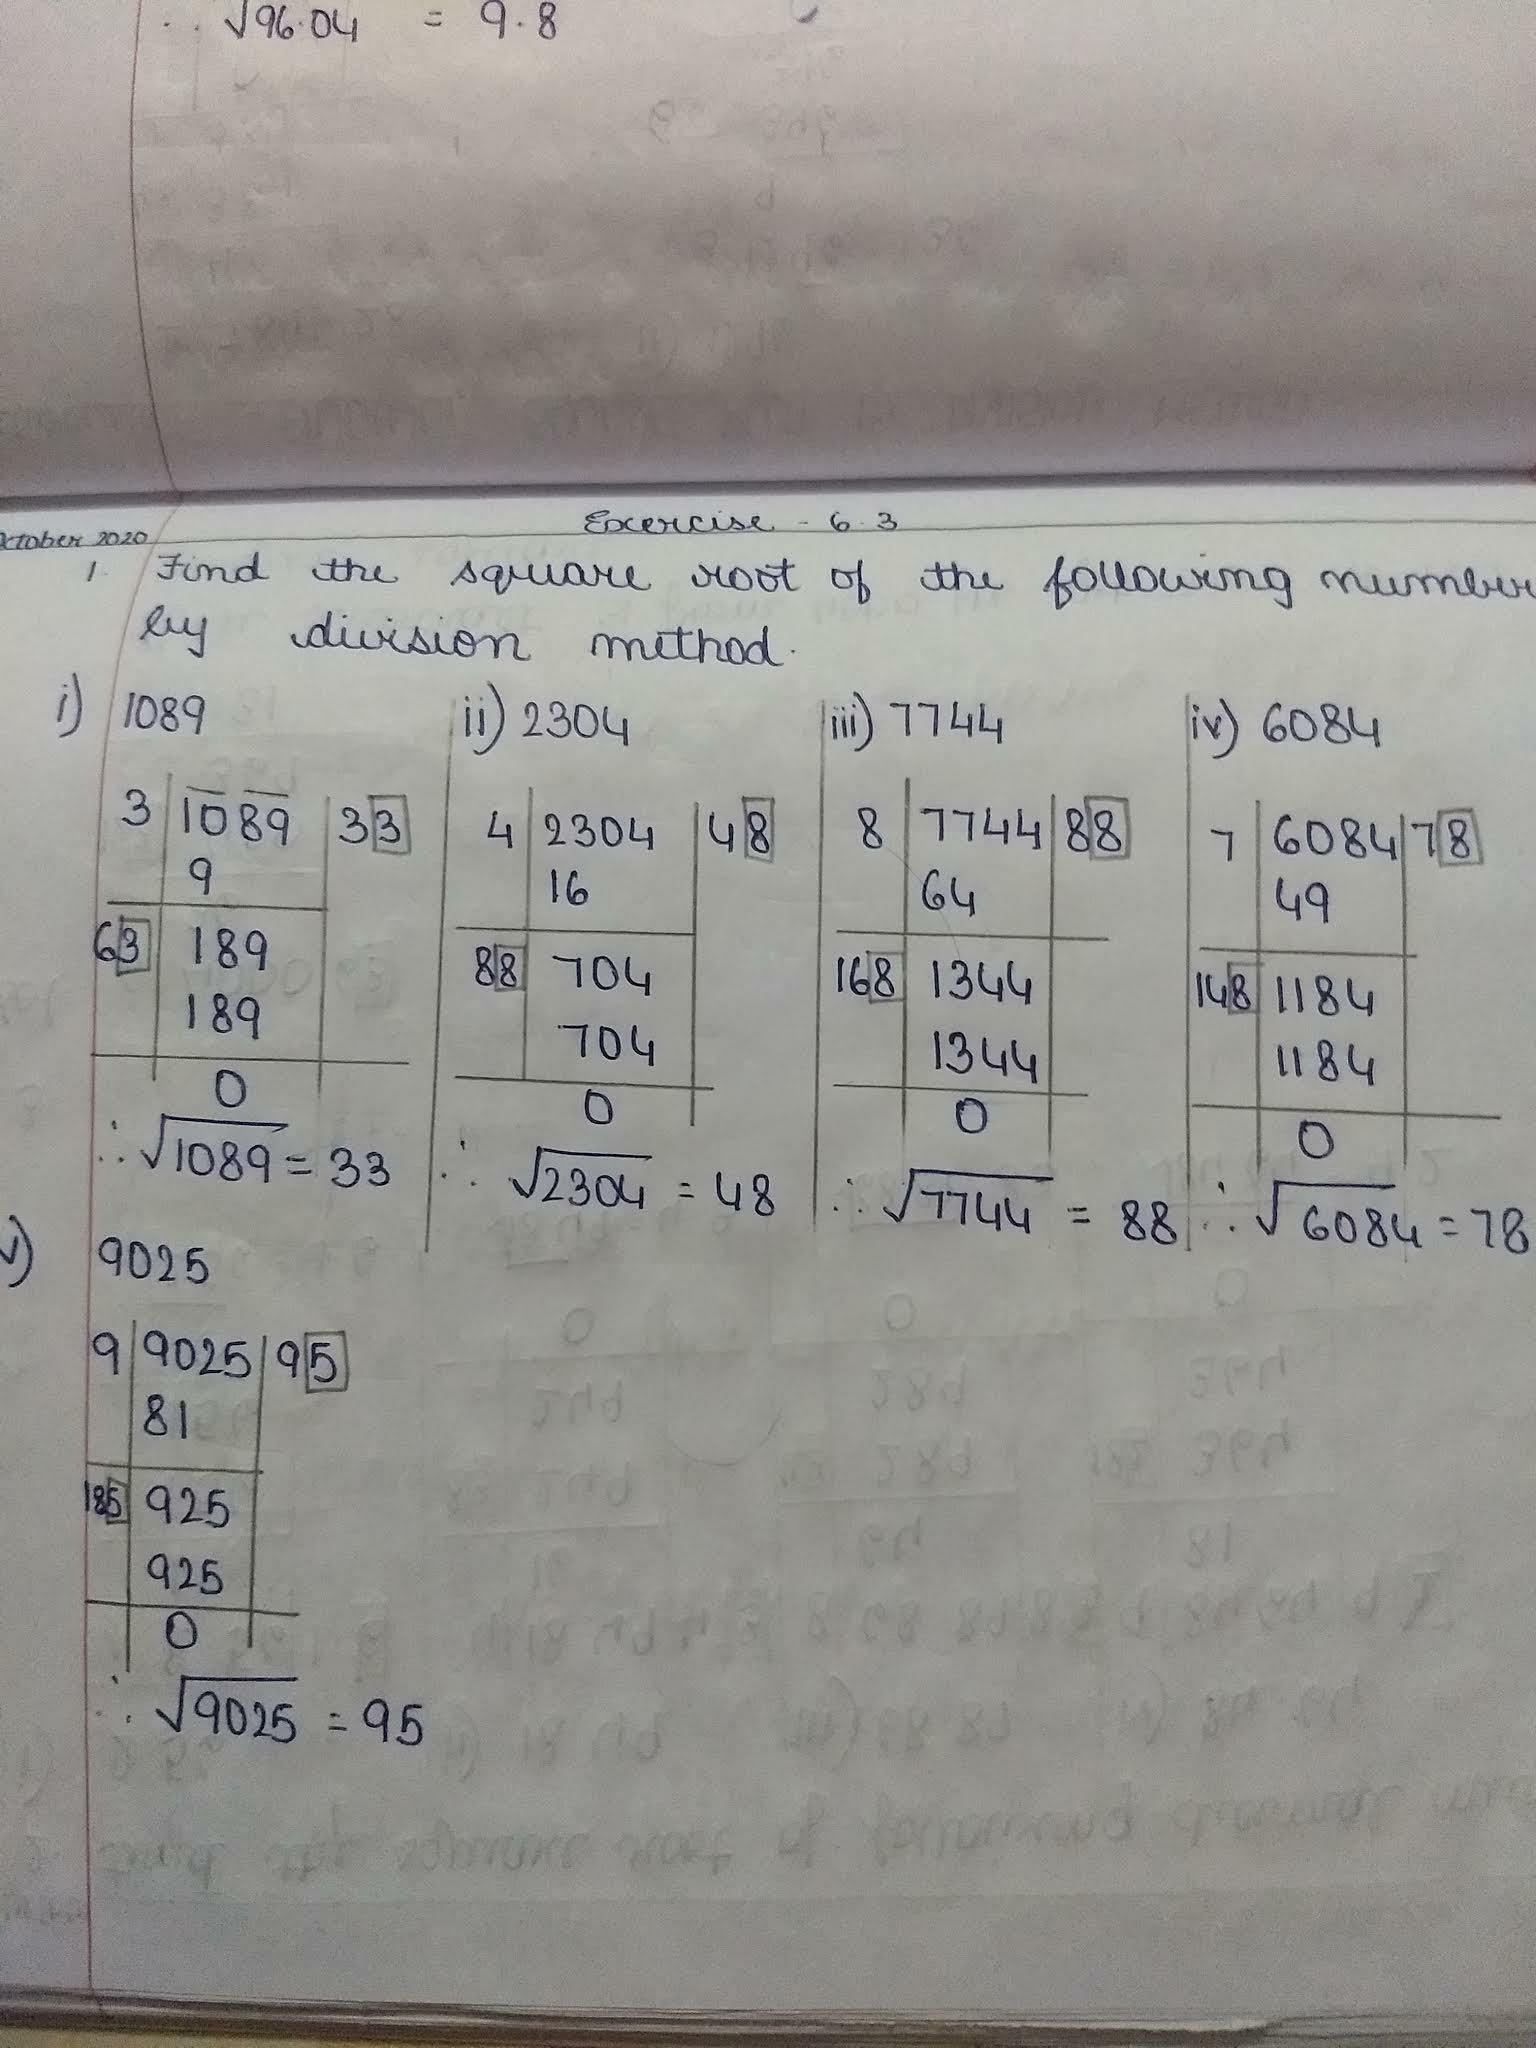 ∴ √96.04 = 9.8
Exercise - 6.3
October 2020
1. Find the square root of the following number
by division method.
i) 1089
3 1089 33
9
63 189
189
0
∴ √1089 = 33
ii) 2304
4 2304 48
16
88 704
704
0
∴ √2304 = 48
iii) 7744
8 7744 88
64
168 1344
1344
0
∴ √7744 = 88
iv) 6084
7 6084 78
49
148 1184
1184
0
∴ √6084 = 78
v) 9025
9 9025 95
81
185 925
925
0
∴ √9025 = 95